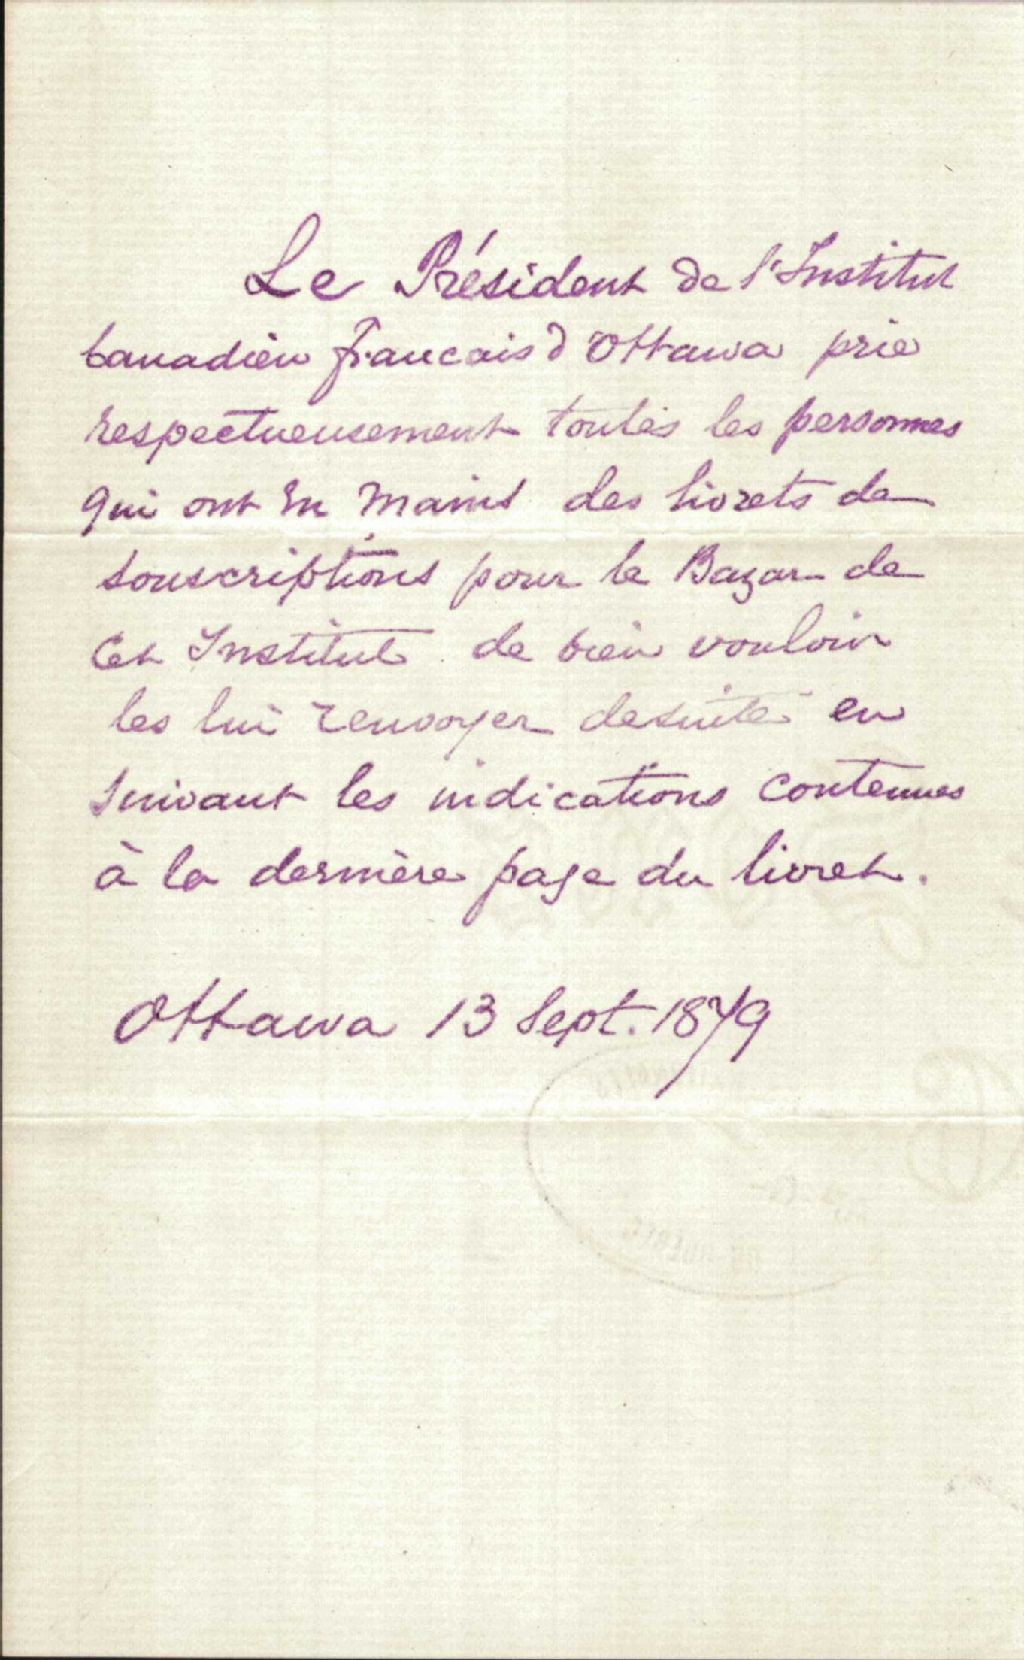 Le Président de l'Institut
Canadien français d'Ottawa prie
respectueusement toutes les personnes
qui ont en mains des livrets de
souscriptions pour le Bazar de
Cet Institut de bien vouloir
les lui renvoyer desuite en
suivant les indications contenues
à la dernière page du livret.
Ottawa 13 Sept. 1879